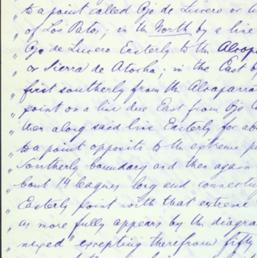 to a point called Ojo de Lucero or
of Los Patos; in the North by a line
Ojo de Lucero Easterly to the
or Sierra de Atocha; in the East by
first southerly from the
point on a line due East from Ojo
then along said line Easterly for
to a point opposite to the extreme
Southerly boundary and then again
leagues long and
Easterly point with that extreme
as more fully appears by the diagram
excepting therefrom fifty